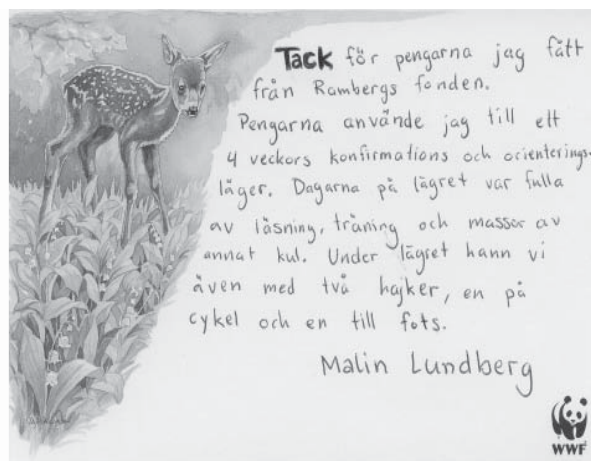 Tack för pengarna jag fått
från Rambergs fonden.
Pengarna använde jag till ett
4 veckors konfirmations och orienterings-
läger. Dagarna på lägret var fulla
av läsning, träning och massor av
annat kul. Under lägret hann vi
även med två hajker, en på
cykel och en till fots.
Malin Lundberg
WWF